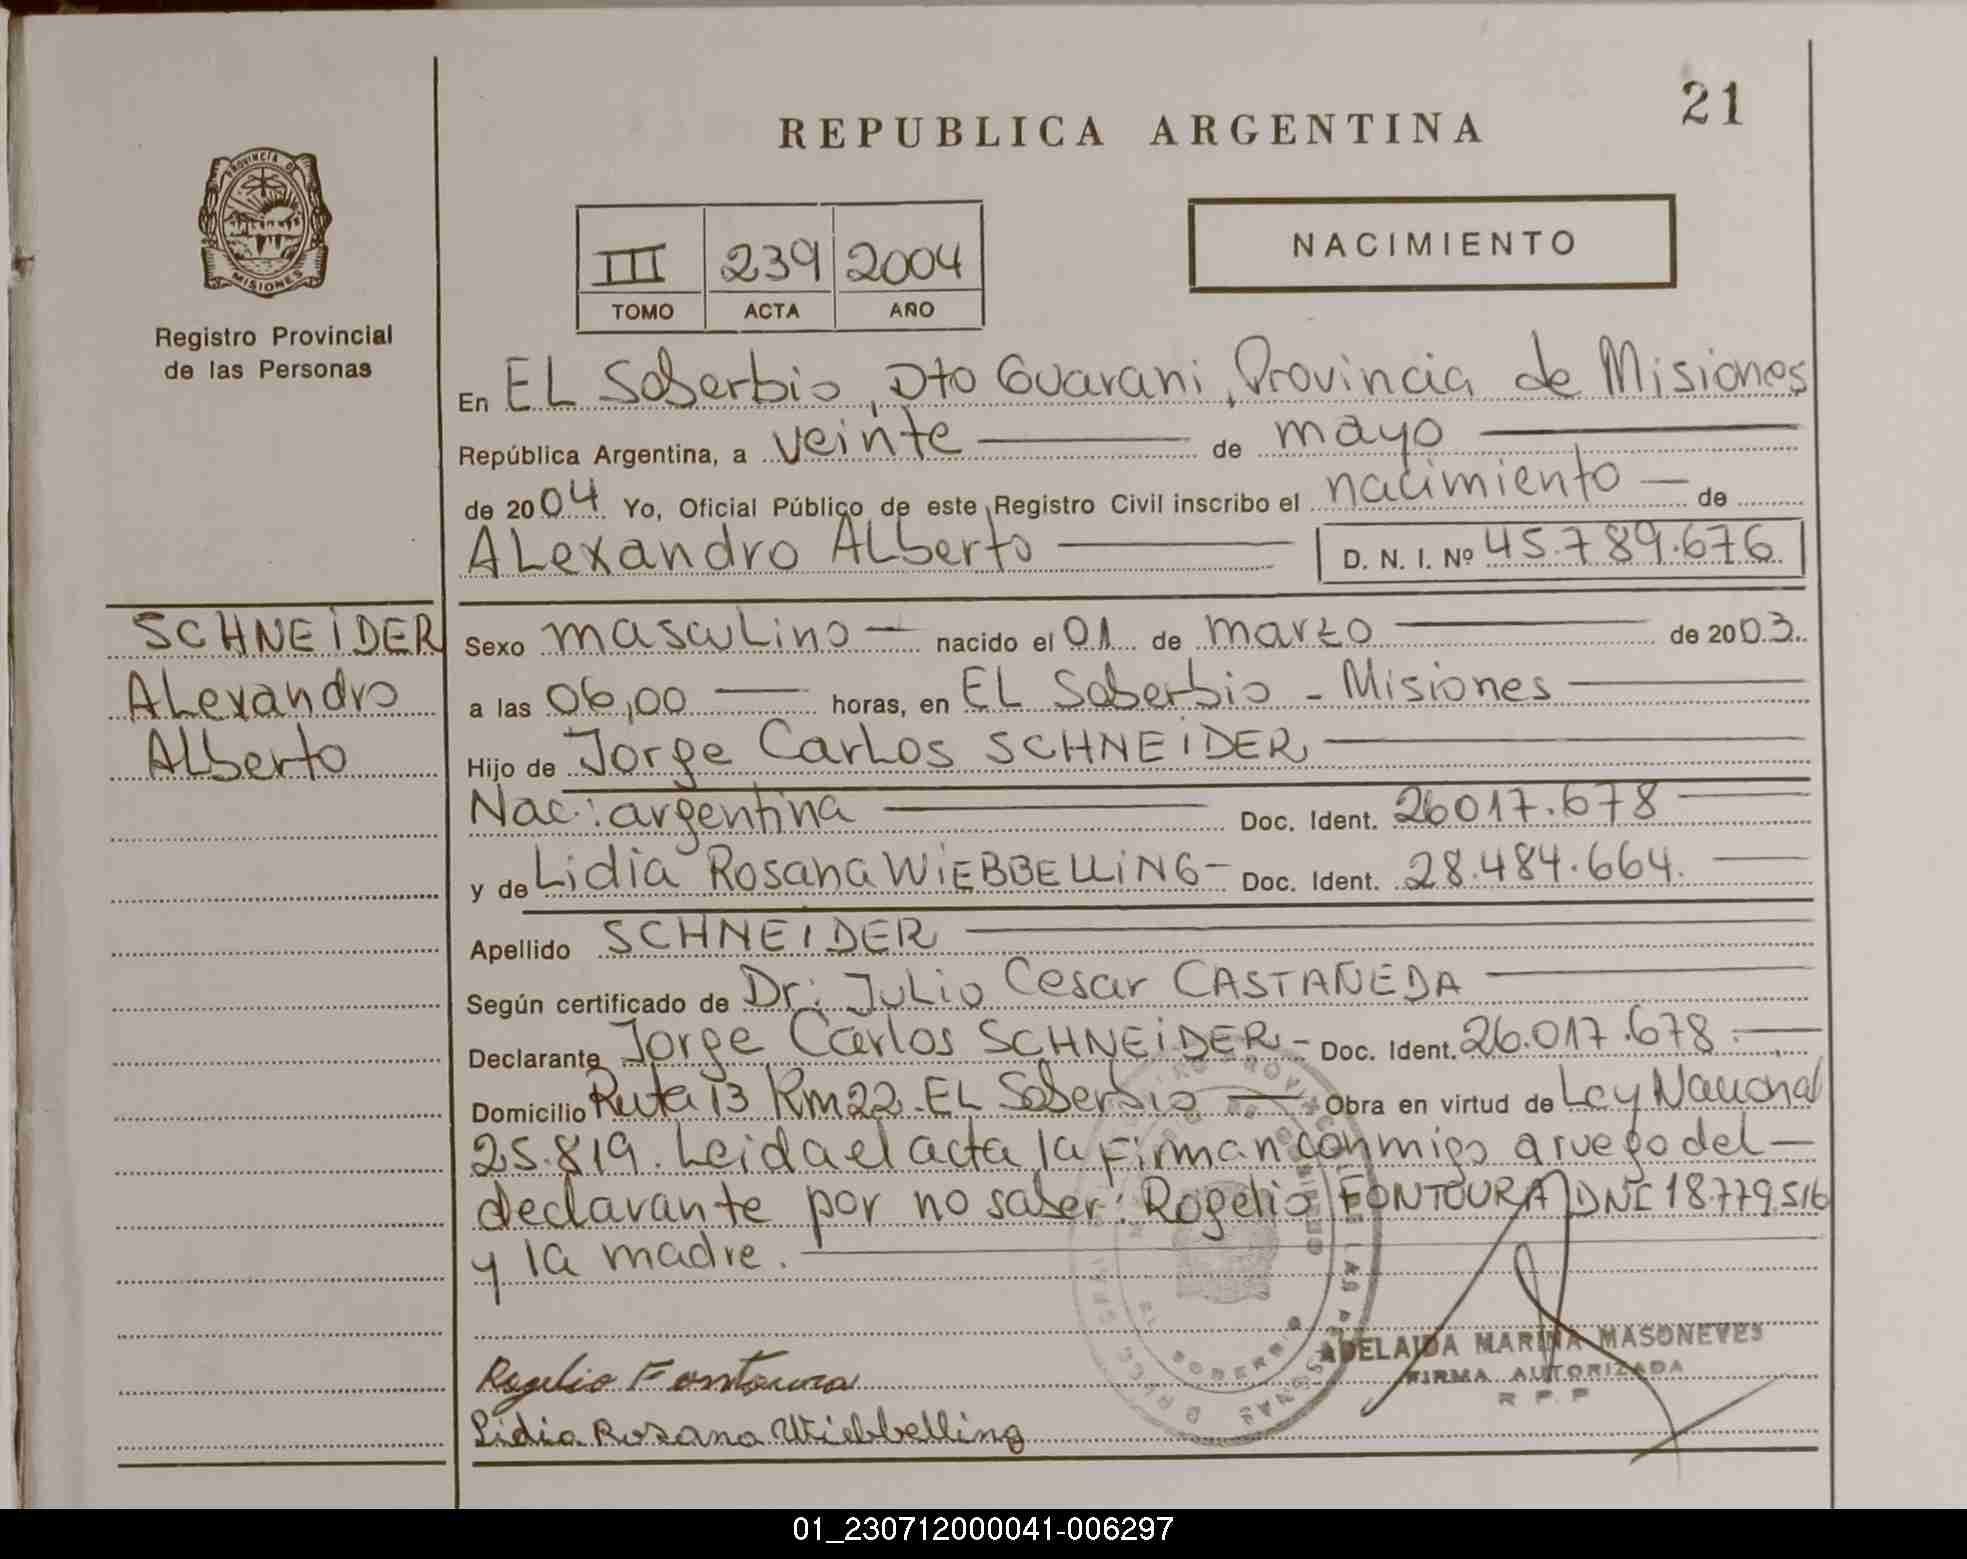 21
REPUBLICA ARGENTINA
PROVINCIA DE
MISIONES
Registro Provincial
de las Personas
III 239 2004
TOMO ACTA AÑO
NACIMIENTO
En EL Soberbio, Dto Guarani, Provincia de Misiones
República Argentina, a veinte de mayo
de 2004 Yo, Oficial Público de este Registro Civil inscribo el nacimiento de
ALexandro ALberto D. N. I. Nº 45.789.676
SCHNEIDER
ALexandro
ALberto
Sexo mascuLino nacido el 01 de marzo de 2003
a las 06,00 horas, en EL Soberbio - Misiones
Hijo de Jorge CarLos SCHNEIDER
Nac: argentina Doc. Ident. 26017.678
y de Lidia Rosana WIEBBELLING - Doc. Ident. 28.484.664.
Apellido SCHNEIDER
Según certificado de Dr: JuLio Cesar CASTAÑEDA
Declarante Jorge Carlos SCHNEIDER - Doc. Ident. 26.017.678
Domicilio Ruta 13 Km 22. EL Soberbio Obra en virtud de Ley Nacional
25.819. Leida el acta la firman conmigo a ruego del
declarante por no saber: Rogelio FONTOURA DNI 18.779.516
y la madre.
ADELAIDA MARINA MASONEVES
FIRMA AUTORIZADA
R P. P
Rogelio Fontoura
Lidia Rosana Wiebbelling
01_230712000041-006297